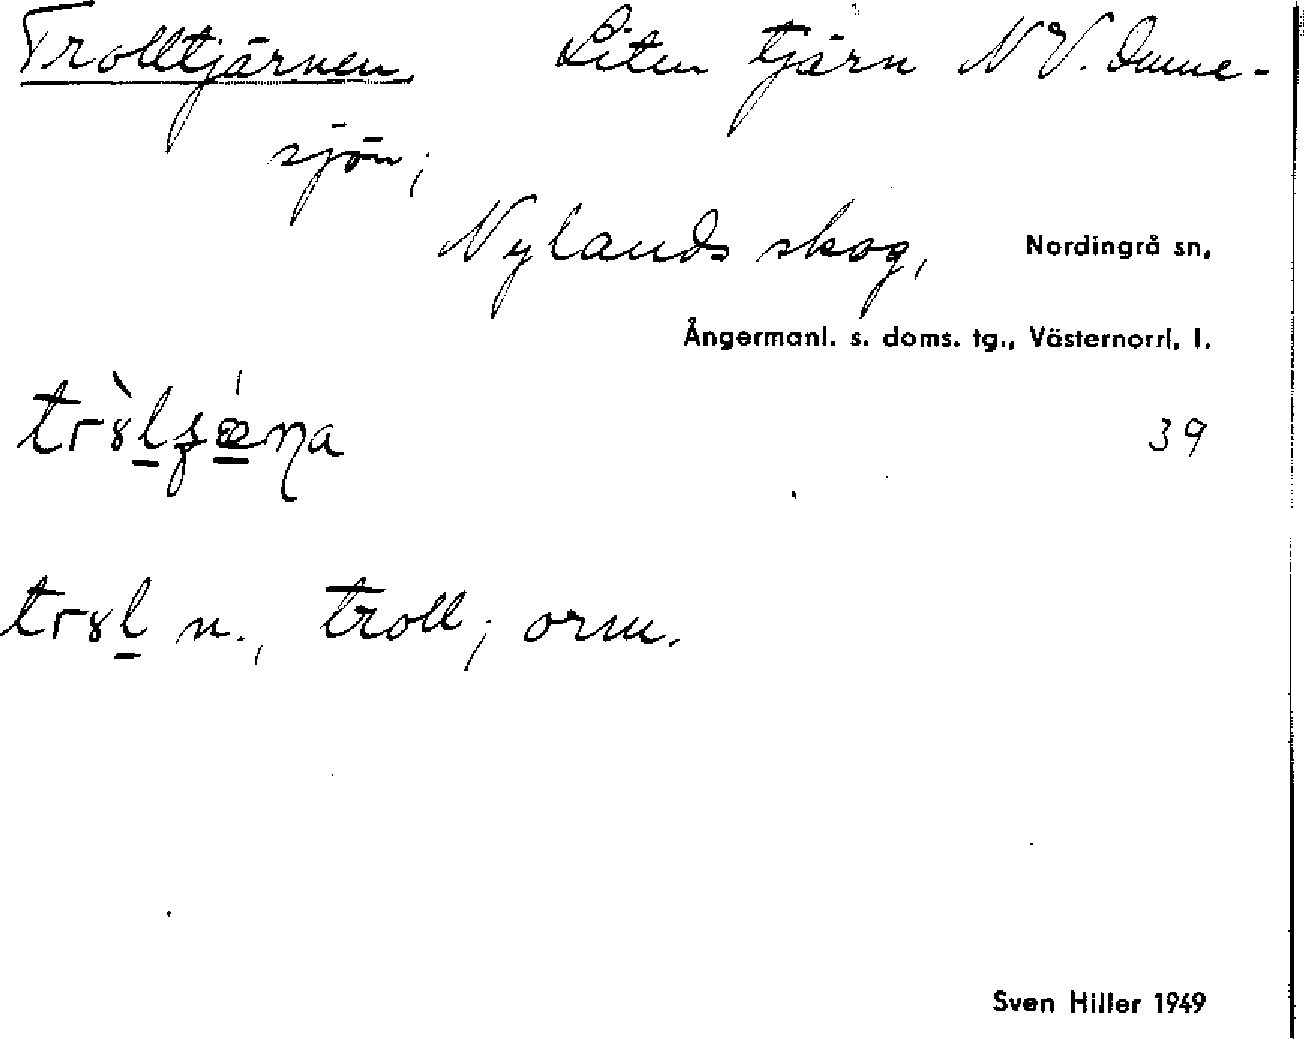 Trolltjärnen. Liten tjärn NV. Omne-
sjön;
Nylands skog, Nordingrå sn,
Ångermanl. s. doms. tg., Västernorrl. l.
39
n., troll; orm.
Sven Hiller 1949